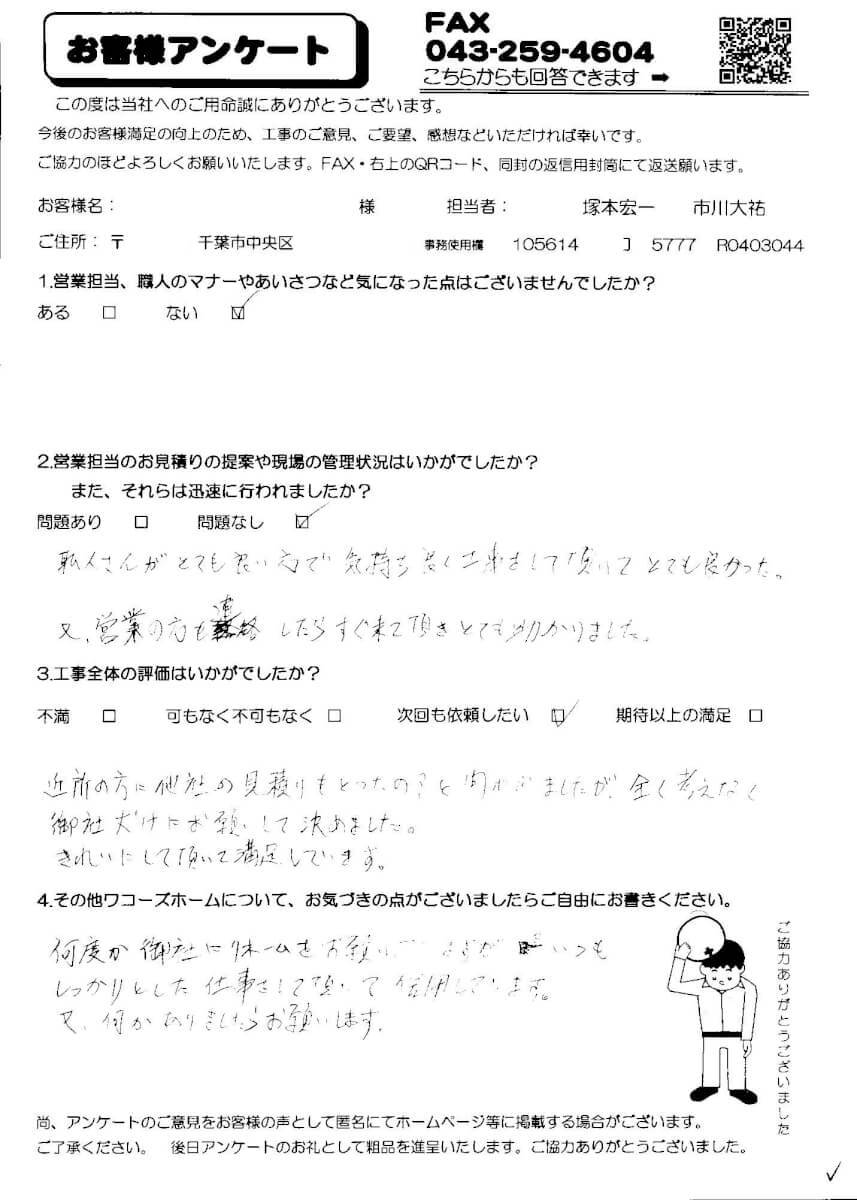 お客様アンケート
FAX
043-259-4604
こちらからも回答できます ➡
この度は当社へのご用命誠にありがとうございます。
今後のお客様満足の向上のため、工事のご意見、ご要望、感想などいただければ幸いです。
ご協力のほどよろしくお願いいたします。FAX・右上のQRコード、同封の返信用封筒にて返送願います。
お客様名： 様 担当者： 塚本宏一 市川大祐
ご住所：〒 千葉市中央区 事務使用欄 105614 J 5777 R0403044
1.営業担当、職人のマナーやあいさつなど気になった点はございませんでしたか？
ある □ ない ☑
2.営業担当のお見積りの提案や現場の管理状況はいかがでしたか？
また、それらは迅速に行われましたか？
問題あり □ 問題なし ☑
職人さんがとても良い方で気持ち良く工事をして頂いてとても良かった。
又、営業の方も連絡したらすぐ来て頂きとても助かりました。
3.工事全体の評価はいかがでしたか？
不満 □ 可もなく不可もなく □ 次回も依頼したい ☑ 期待以上の満足 □
近所の方に他社の見積りもとったの？と聞かれましたが、全く考えなく
御社だけにお願いして決めました。
きれいにして頂いて満足しています。
4.その他ワコーズホームについて、お気づきの点がございましたらご自由にお書きください。
何度か御社にリホームをお願い ますが いつも
しっかりとした仕事をして頂いて信用しています。
又、何かありましたらお願いします。
ご協力ありがとうございました
尚、アンケートのご意見をお客様の声として匿名にてホームページ等に掲載する場合がございます。
ご了承ください。 後日アンケートのお礼として粗品を進呈いたします。ご協力ありがとうございました。